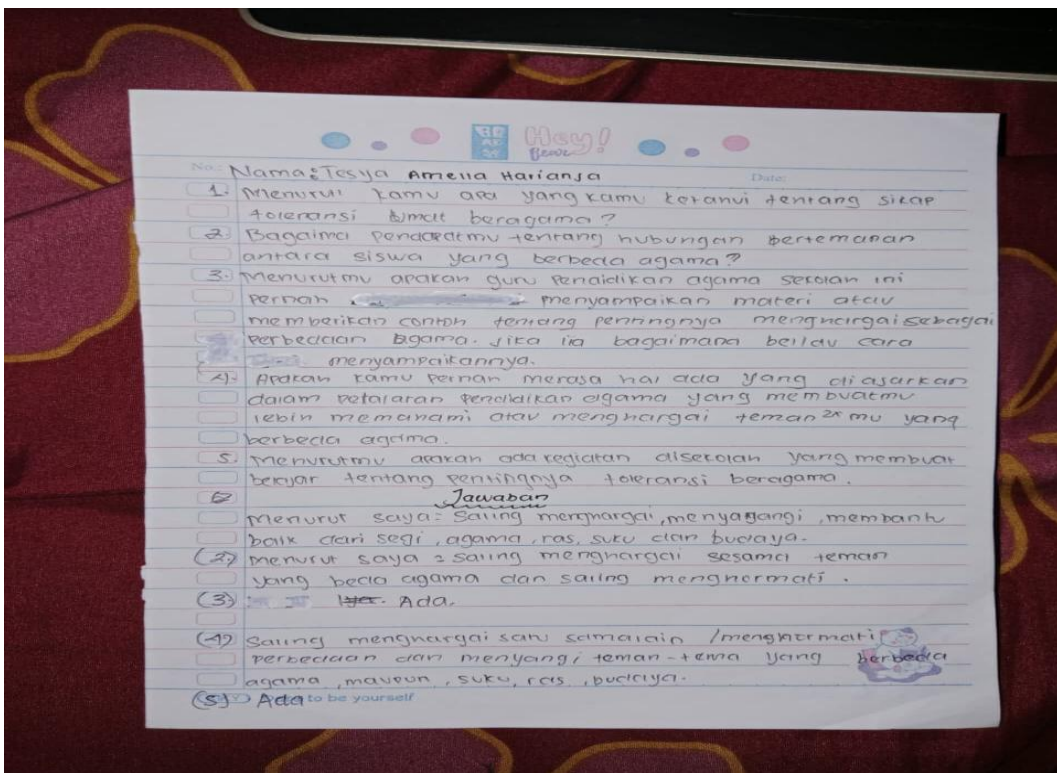 BE
AR
Hey!
Bear
No: Nama: Tesya Amelia Harianja Date:
1. Menurut kamu apa yang kamu ketahui tentang sikap
toleransi umat beragama?
2. Bagaima pendapatmu tentang hubungan bertemanan
antara siswa yang berbeda agama?
3. Menurutmu apakah guru pendidikan agama sekolah ini
pernah menyampaikan materi atau
memberikan contoh tentang pentingnya menghargai sebagai
perbedaan agama. Jika ia bagaimana beilau cara
menyampaikannya.
4) Apakah kamu pernah merasa hal ada yang diajarkan
dalam pelajaran pendidikan agama yang membuatmu
lebih memahami atau menghargai teman 2x mu yang
berbeda agama.
5. Menurutmu apakah ada kegiatan disekolah yang membuat
berajar tentang pentingnya toleransi beragama.
Jawaban
Menurut saya: Saling menghargai, menyayangi, membantu
baik dari segi, agama, ras, suku dan budaya.
(2) Menurut saya: saling menghargai sesama teman
yang beda agama dan saling menghormati.
(3) Ada.
(4) Saling menghargai satu samalain / menghormati
perbedaan dan menyangi teman-tema yang berbeda
agama, maupun, suku, ras, budaya.
(5) Ada to be yourself